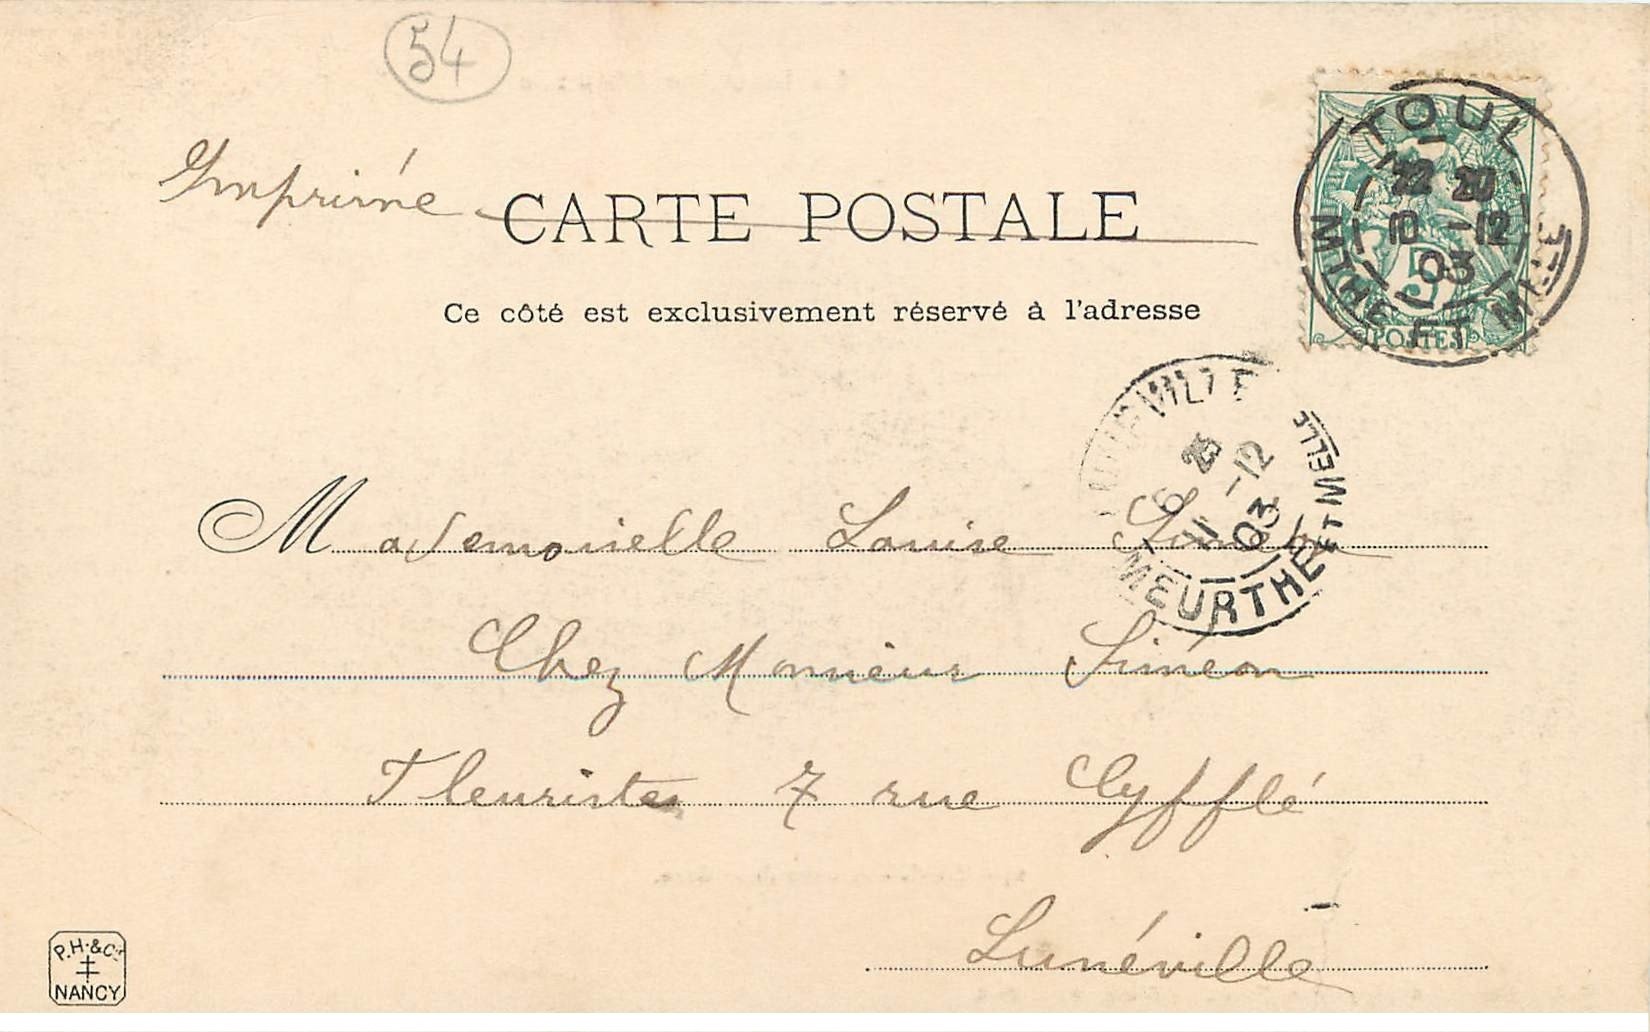 54
Imprimé
CARTE POSTALE
Ce côté est exclusivement réservé à l'adresse
TOUL
22 20
10 -12
03
MTHE ET MELLE
5
POSTES
LUNEVILLE
6 25
11 -12
03
MEURTHE ET MELLE
Mademoiselle Louise
Chez Monsieur Siméon
Fleuristes 7 rue Cyfflé
Lunéville
P.H.&Cie
NANCY